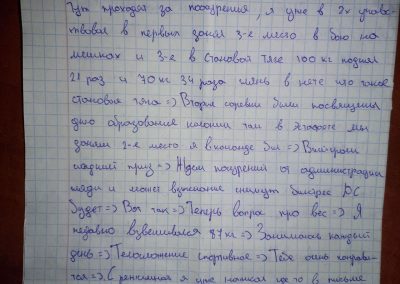 Тут проходят за поощрения, я уже в 2х участ-
ствовал в первых занял 3-е место в бою на
мешках и 3-е в становой тяге 100 кг поднял
21 раз и 70 кг 34 раза глянь в нете что такое
становая тяга=) Вторые соревы были посвящены
дню образования колонии там в эстафете мы
заняли 2-е место я в команде был=) Выиграли
сладкий приз=) Ждем поощрений от администрации
и может взыскание снимут быстрее
будет=) Вот так=) Теперь вопрос про вес=) Я
недавно взвешивался 87 кг=) Занимаюсь каждый
день=) Телосложение спортивное=) Тебе очень понрави-
тся=) С я уже написал где то в письме